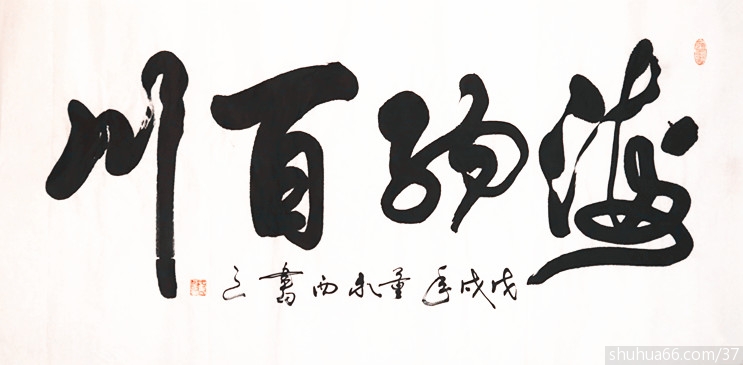 海納百川
戊戌年董永西書
shuhua66.com/37